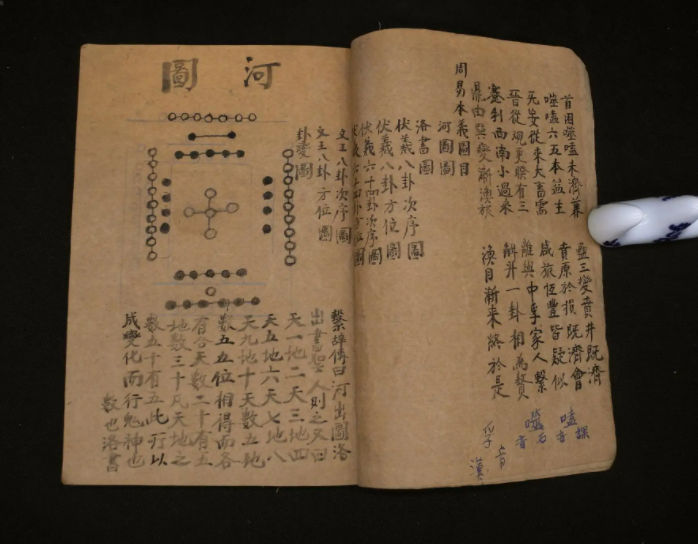 首困噬嗑未濟兼
蠱三變賁井既濟
噬嗑六五本益生
賁原於損既濟會
无妄從来大畜需
咸旅恆豐皆疑似
晉從覌更睽有三
離與中孚家人繫
蹇利西南小過来
解升一卦相為贅
變漸渙旅
渙自漸来終於是
嗑音課
噬音石
周易本義圖目
河圖圖
洛書圖
伏羲八卦次序圖
伏羲八卦方位圖
伏羲六十四卦次序圖
伏羲六十四卦方位圖
文王八卦次序圖
文王八卦方位圖
卦變圖
河圖
繫辭傳曰河出圖洛
出書聖人則之又曰
天一地二天三地四
天五地六天七地八
天九地十天數五地
數五五位相得而各
有合天數二十有五
地數三十凡天地之
數五十有五此所以
成變化而行鬼神也
數也洛書